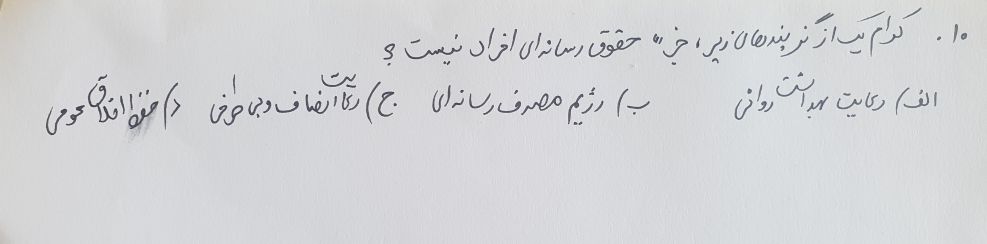 ۱۰. کدام یک از گزینه‌های زیر، جزء حقوق رسانه‌ای افراد نیست؟
الف) رعایت بهداشت روانی ب) رژیم مصرف رسانه‌ای ج) رعایت انصاف و بی طرفی د) حفظ اخلاق عمومی